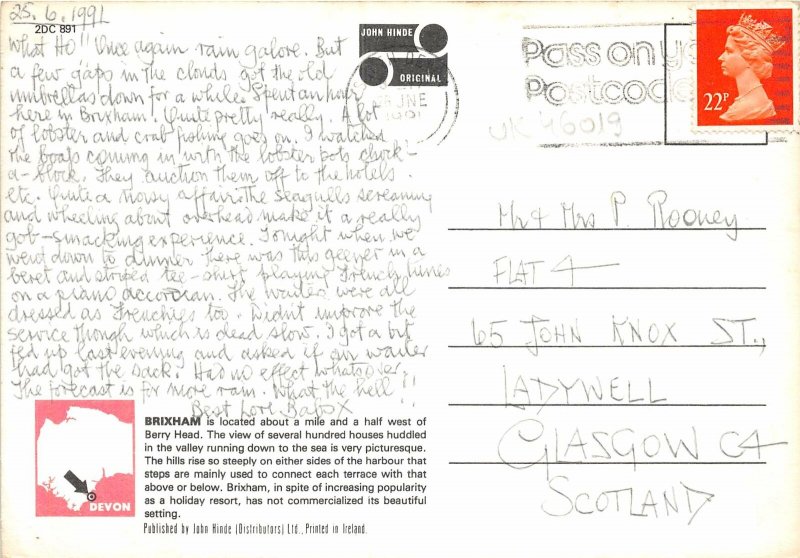 25.6.1991
2DC 891
What Ho!! Once again rain galore. But
a few gaps in the clouds got the old
umbrellas down for a while. Spent an hour
here in Brixham. Quite pretty really. A lot
of lobster and crab fishing goes on. I watched
the boats coming in with the lobster pots chock-
a-block. They auction them off to the hotels
etc. Quite a noisy affair. The seagulls screaming
and wheeling about overhead make it a really
gob-smacking experience. Tonight when we
went down to dinner there was this geezer in a
beret and striped tee-shirt playing French tunes
on a piano accordian. The waiters were all
dressed as Frenchies too. Didn't improve the
service though which is dead slow. I got a bit
fed up last evening and asked if our waiter
had got the sack. Had no effect whatsoever.
The forecast is for more rain. What the hell!!
Best love Babs X
JOHN HINDE
ORIGINAL
JNE
1991
Pass on yo
Postcode
22P
UK 46019
Mr & Mrs P. Rooney
FLAT 4
65 JOHN KNOX ST.,
LADYWELL
GLASGOW G4
SCOTLAND
DEVON
BRIXHAM is located about a mile and a half west of
Berry Head. The view of several hundred houses huddled
in the valley running down to the sea is very picturesque.
The hills rise so steeply on either sides of the harbour that
steps are mainly used to connect each terrace with that
above or below. Brixham, in spite of increasing popularity
as a holiday resort, has not commercialized its beautiful
setting.
Published by John Hinde (Distributors) Ltd., Printed in Ireland.